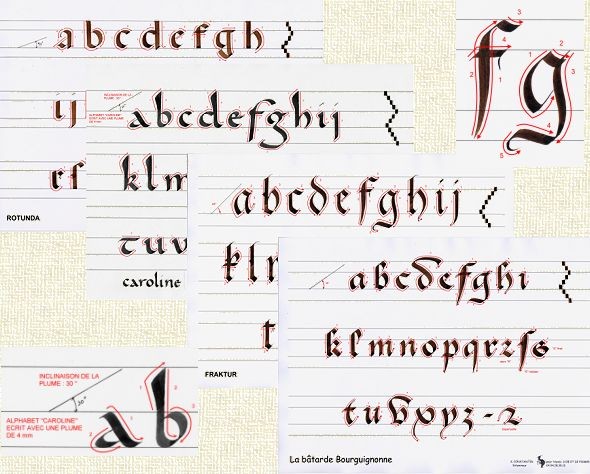 a b c d e f g h
ij
rs
ROTUNDA
INCLINAISON DE LA
PLUME : 30°
ALPHABET "CAROLINE"
ECRIT AVEC UNE PLUME
DE 4 mm
a b c d e f g h i j
k l m
t u v
caroline
a b c d e f g h i j
k l
t
FRAKTUR
a b c d e f g h i
k l m n o p q r z s s
t u v x y z - 2
La bâtarde Bourguignonne
f g
1
2
3
4
5
1
2
3
4
INCLINAISON DE LA
PLUME : 30 °
30°
ALPHABET "CAROLINE"
ECRIT AVEC UNE PLUME
DE 4 mm
a b
1
2
1
2
3